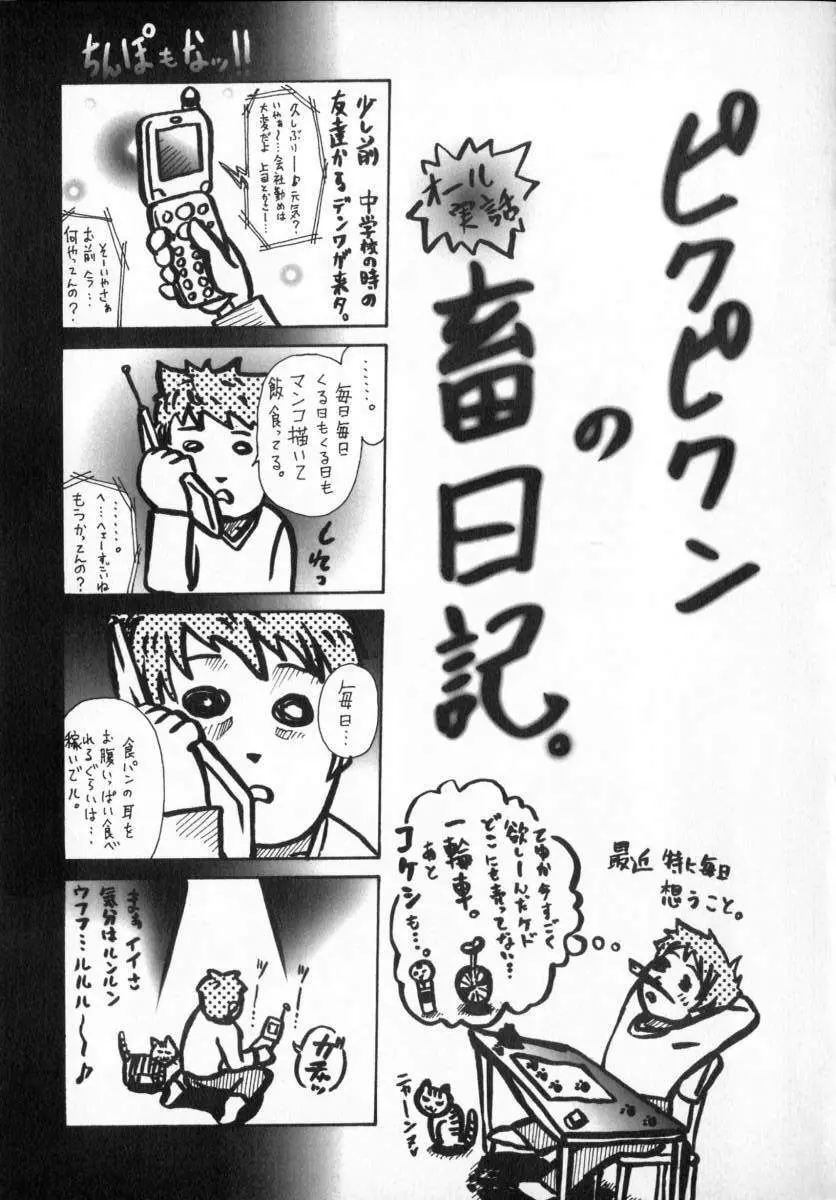 ピクピクン
の
オール
実話
畜日記。
ちんぽもなッ!!
少し前 中学校の時の
友達からデンワが来タ。
久しぶりー♪元気?
いやぁ〜…会社勤めは
大変だよ 上司とかさー…
そーいやさぁ
お前今…
何やってんの?
……。
毎日毎日
くる日もくる日も
マンコ描いて
飯食ってる。
しれっ
……。
へ…ヘェーすごいね
もうかってんの?
毎日…
食パンの耳を
お腹いっぱい食べ
れるぐらいは…
稼いでル。
ツー
ツー
ガチャッ
まぁイイさ
気分はルンルン
ウフフ…ルルル〜〜♪
最近 特に毎日
想うこと。
てゆか今すごく
欲しーんだケド
どこにも売ってない…
一輪車。
あと
コケシも…。
ニャーン